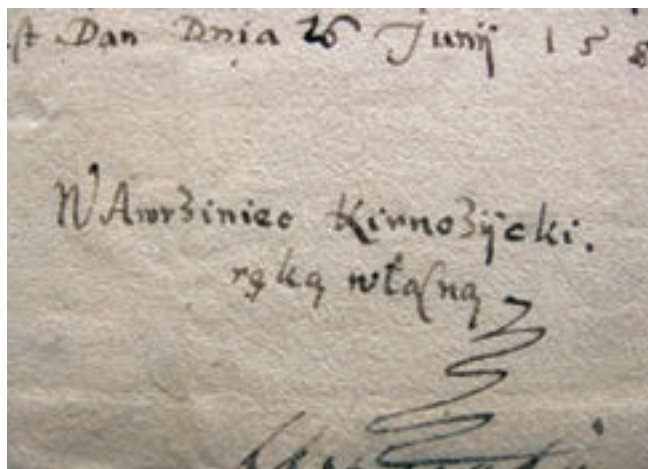 st Dan Dnia 26 Junij 158
WAwrziniec Kirnozijcki.
ręką włаsną